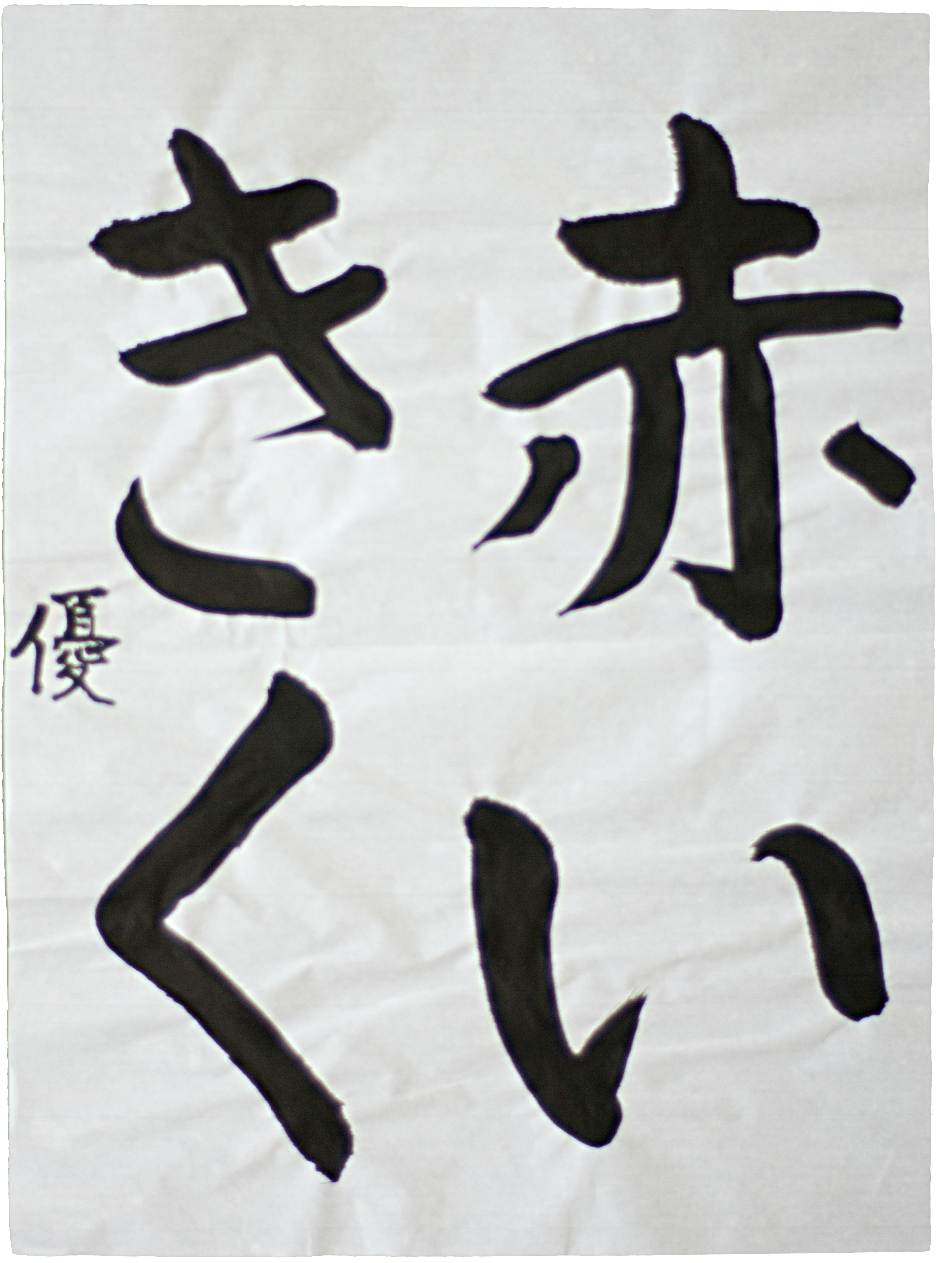 赤い
きく
優